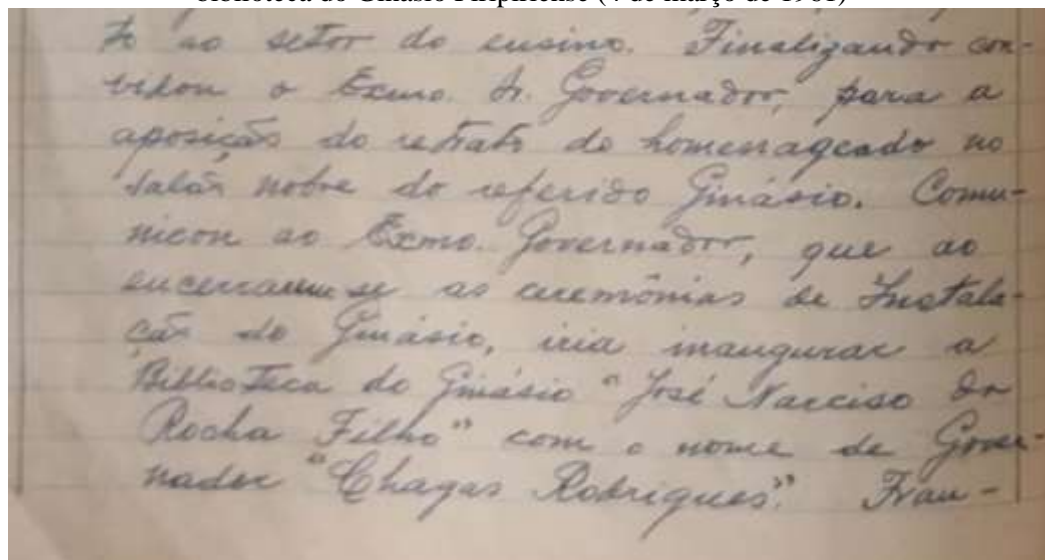 biblioteca do Ginásio Piripiriense (4 de março de 1961)
to ao setor do ensino. Finalizando con-
vidou o Exmo. Sr. Governador, para a
aposição do retrato do homenageado no
salão nobre do referido Ginásio. Comu-
nicou ao Exmo. Governador, que ao
encerrarem se as ceremônias de Instala-
ção do Ginásio, iria inaugurar a
Biblioteca do Ginásio "José Narciso da
Rocha Filho" com o nome de Gover-
nador "Chagas Rodrigues". Fran-